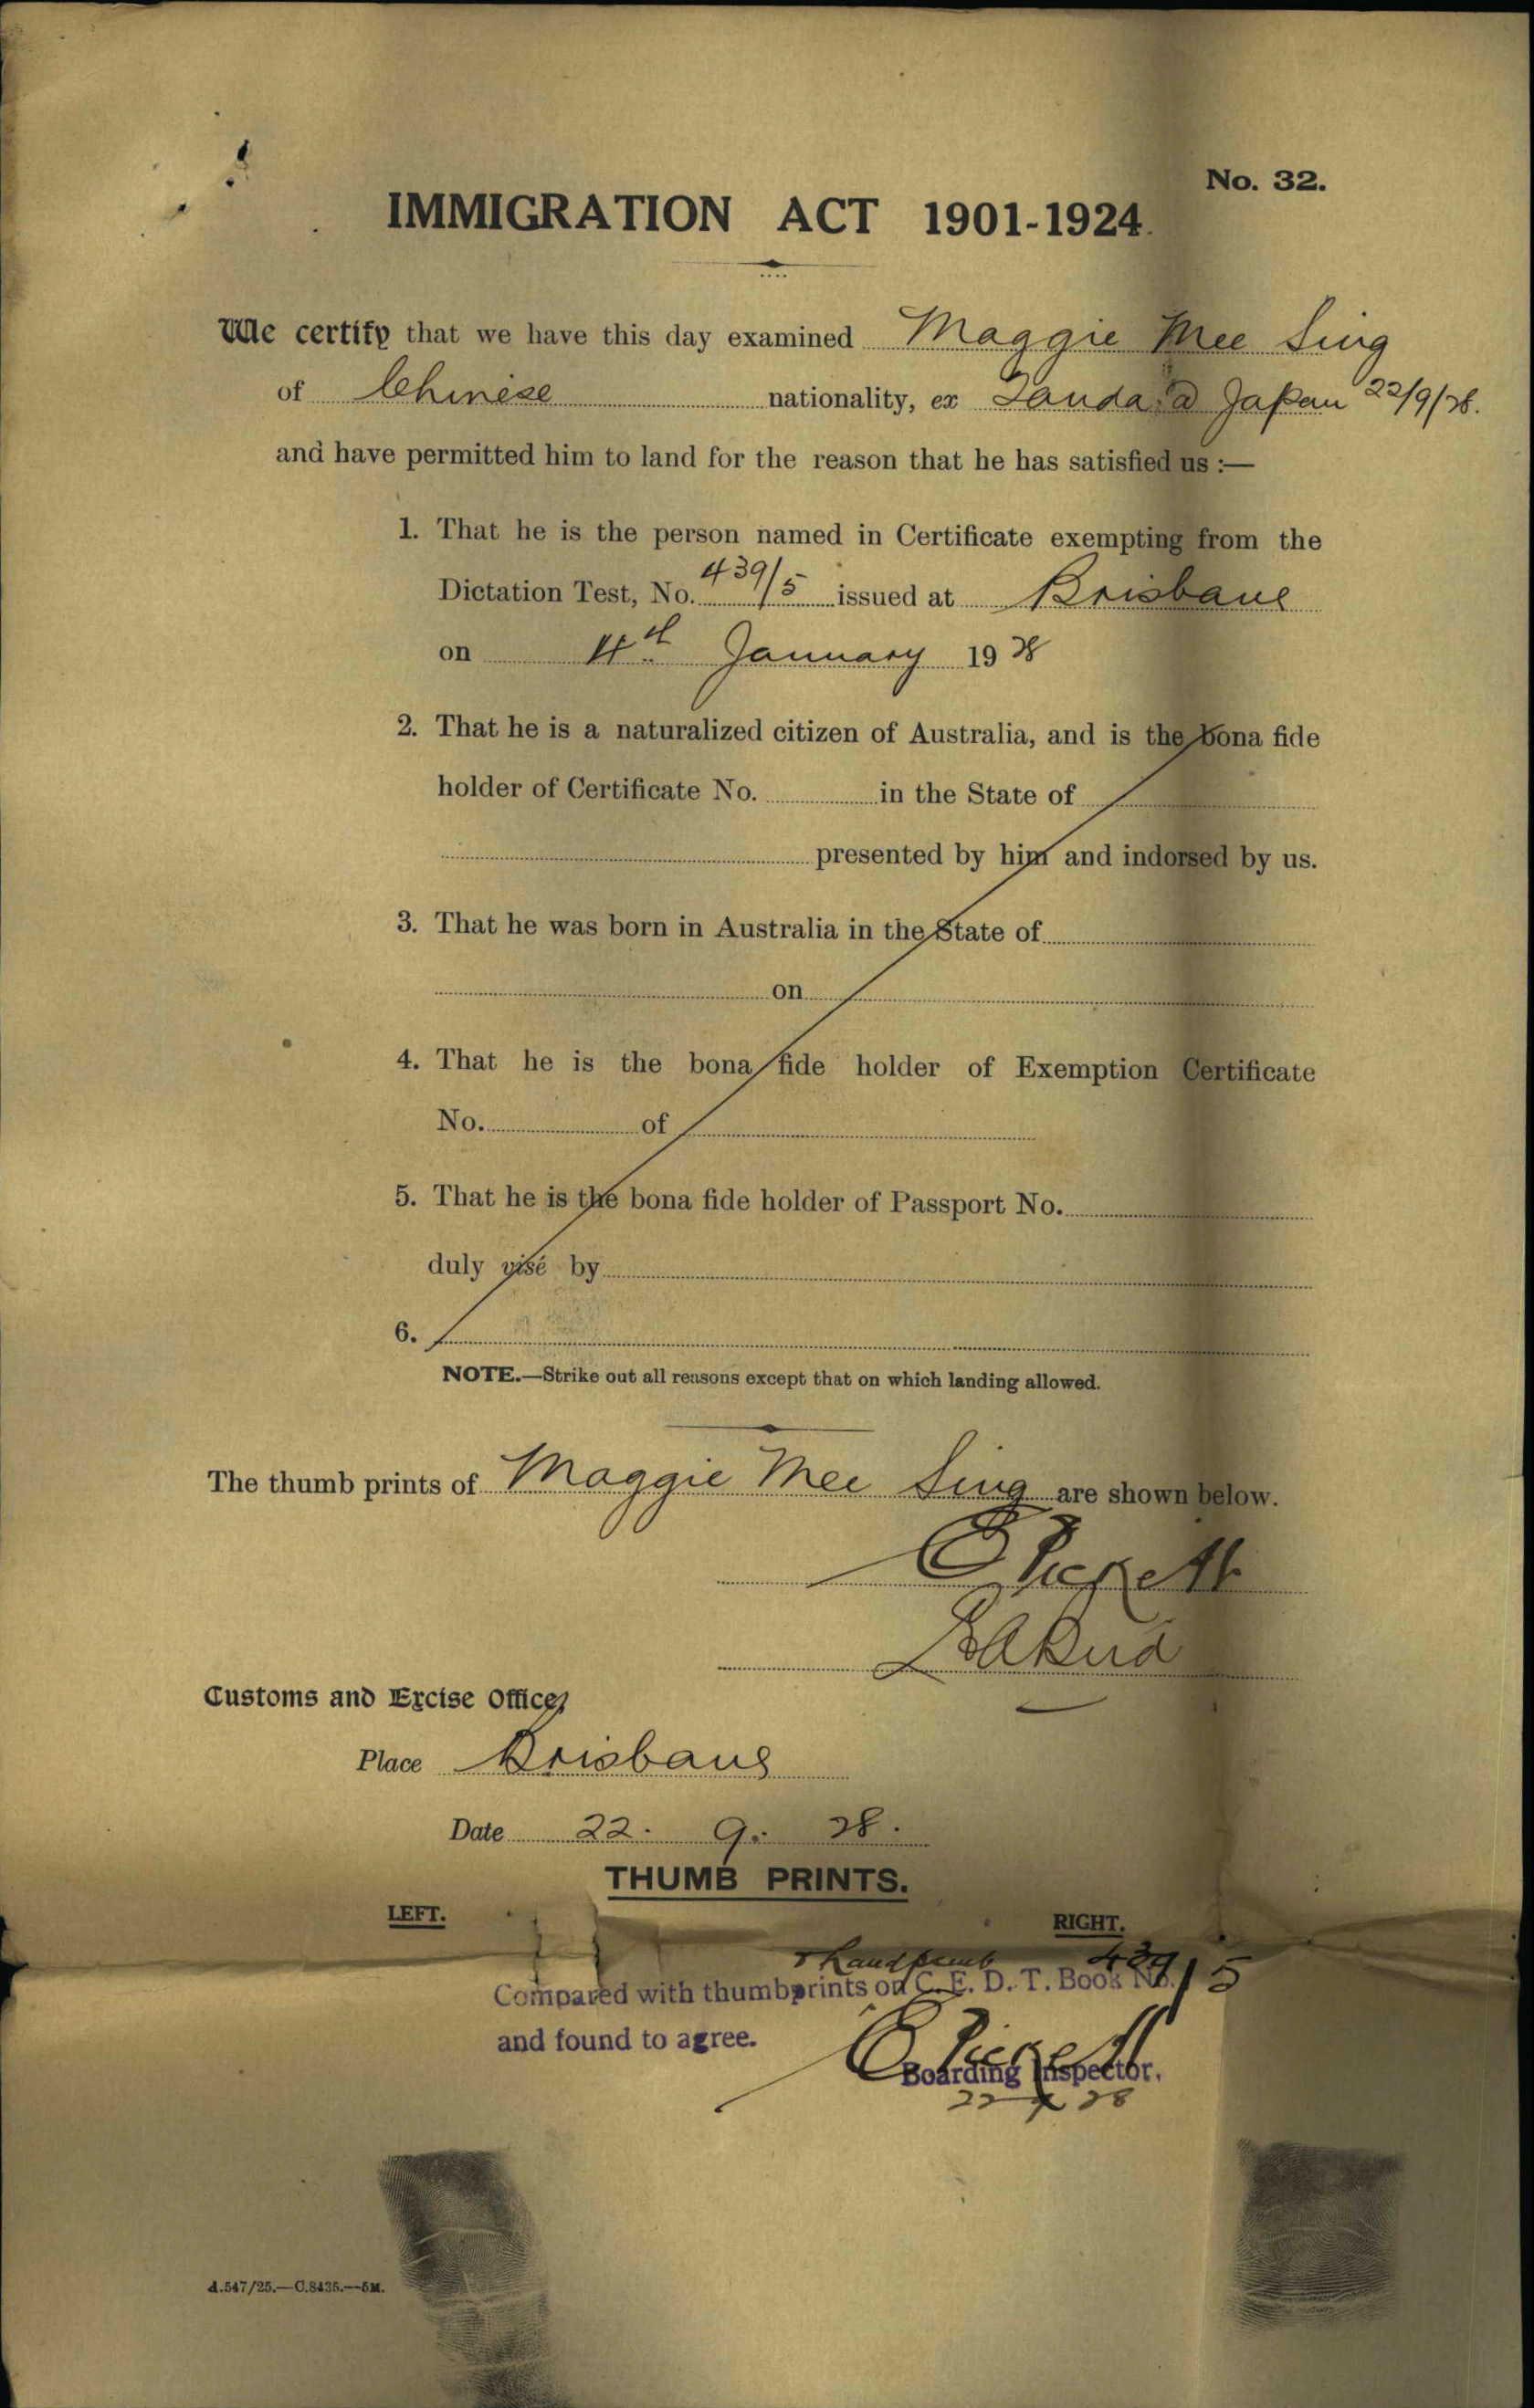 No. 32.
IMMIGRATION ACT 1901-1924.
We certify that we have this day examined Maggie Mee Sing
of Chinese nationality, ex Tanda @ Japan 22/9/28.
and have permitted him to land for the reason that he has satisfied us :—
1. That he is the person named in Certificate exempting from the
Dictation Test, No. 439/5 issued at Brisbane
on 4th January 1928
2. That he is a naturalized citizen of Australia, and is the bona fide
holder of Certificate No. in the State of
presented by him and indorsed by us.
3. That he was born in Australia in the State of
on
4. That he is the bona fide holder of Exemption Certificate
No. of
5. That he is the bona fide holder of Passport No.
duly visé by
6.
NOTE.—Strike out all reasons except that on which landing allowed.
The thumb prints of Maggie Mee Sing are shown below.
E Pickett
Customs and Excise Office,
Place Brisbane
Date 22. 9. 28.
THUMB PRINTS.
LEFT.
RIGHT.
& handprints 439/5
Compared with thumbprints on C. E. D. T. Book No.
and found to agree.
E Pickett
Boarding Inspector.
22 9 28
A.547/25.—C.8435.—5M.